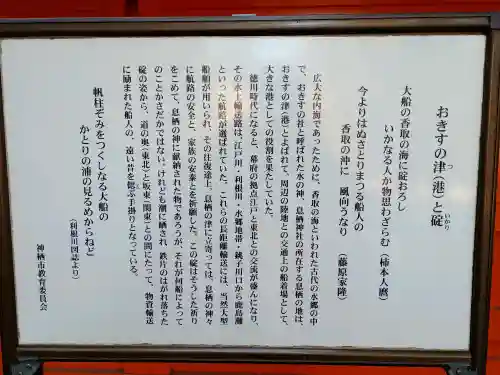 おきすの津(つ)(港)と碇(いかり)
大船の香取の海に碇おろし
いかなる人か物思わざらむ(柿本人麿)
今よりはぬさとりまつる船人の
香取の沖に 風向うなり (藤原家隆)
広大な内海であったために、香取の海といわれた古代の水郷の中
で、おきすの社と呼ばれた水の神、息栖神社の所在する息栖の地は、
おきすの津(港)とよばれて、周辺の陸地との交通上の船着場として、
大きな港としての役割を果たしていた。
徳川時代になると、幕府の拠点江戸と東北との交流が盛んになり、
その水上輸送路は、江戸川・利根川・水郷地帯・銚子川口から鹿島灘
といった航路が選ばれていた。これらの長距離輸送には、当然大型
船舶が用いられ、その往復途上、息栖の津に立寄っては、息栖の神々
に航路の安全と、家族の安泰とを祈願した。この碇はそうした祈り
をこめて、息栖の神に献納された物であろうが、それが何船によって
のことかさだかではない。けれども潮に晒され 鉄片のはがれ落ちた
碇の姿から、道の奥(東北)と坂東(関東)との間にたって、物資輸送
に励まれた船人の、遠い昔を偲ぶ手掛りとなっている。
帆柱ぞみをつくしなる大船の
かとりの浦の見るめからねど
(利根川図誌より)
神栖市教育委員会